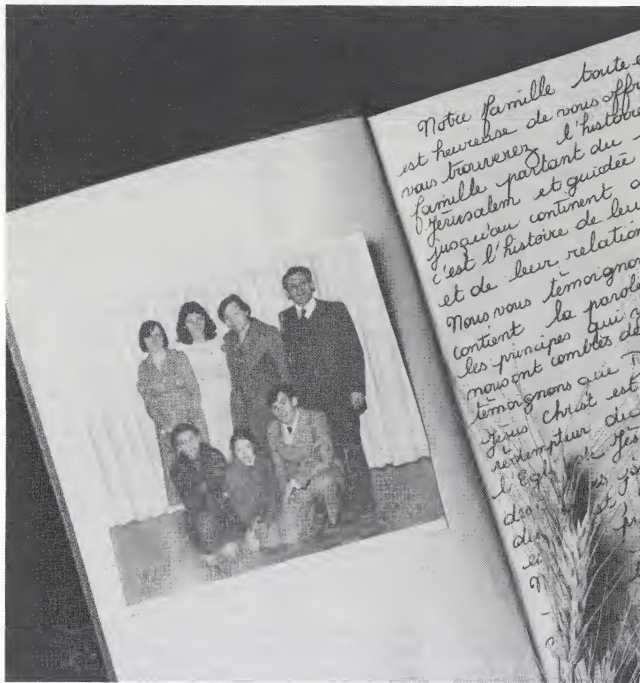 Notre famille toute e
est heureuse de vous offri
vous trouverez l'histoire
famille partant du
Jérusalem et guidée
jusqu'au continent a
c'est l'histoire de leu
et de leur relation
Nous vous témoignon
contient la parole
les principes qui
nous ont comblés de
témoignons que
Jésus Christ est
rédempteur du
l'Eglise Jés
des